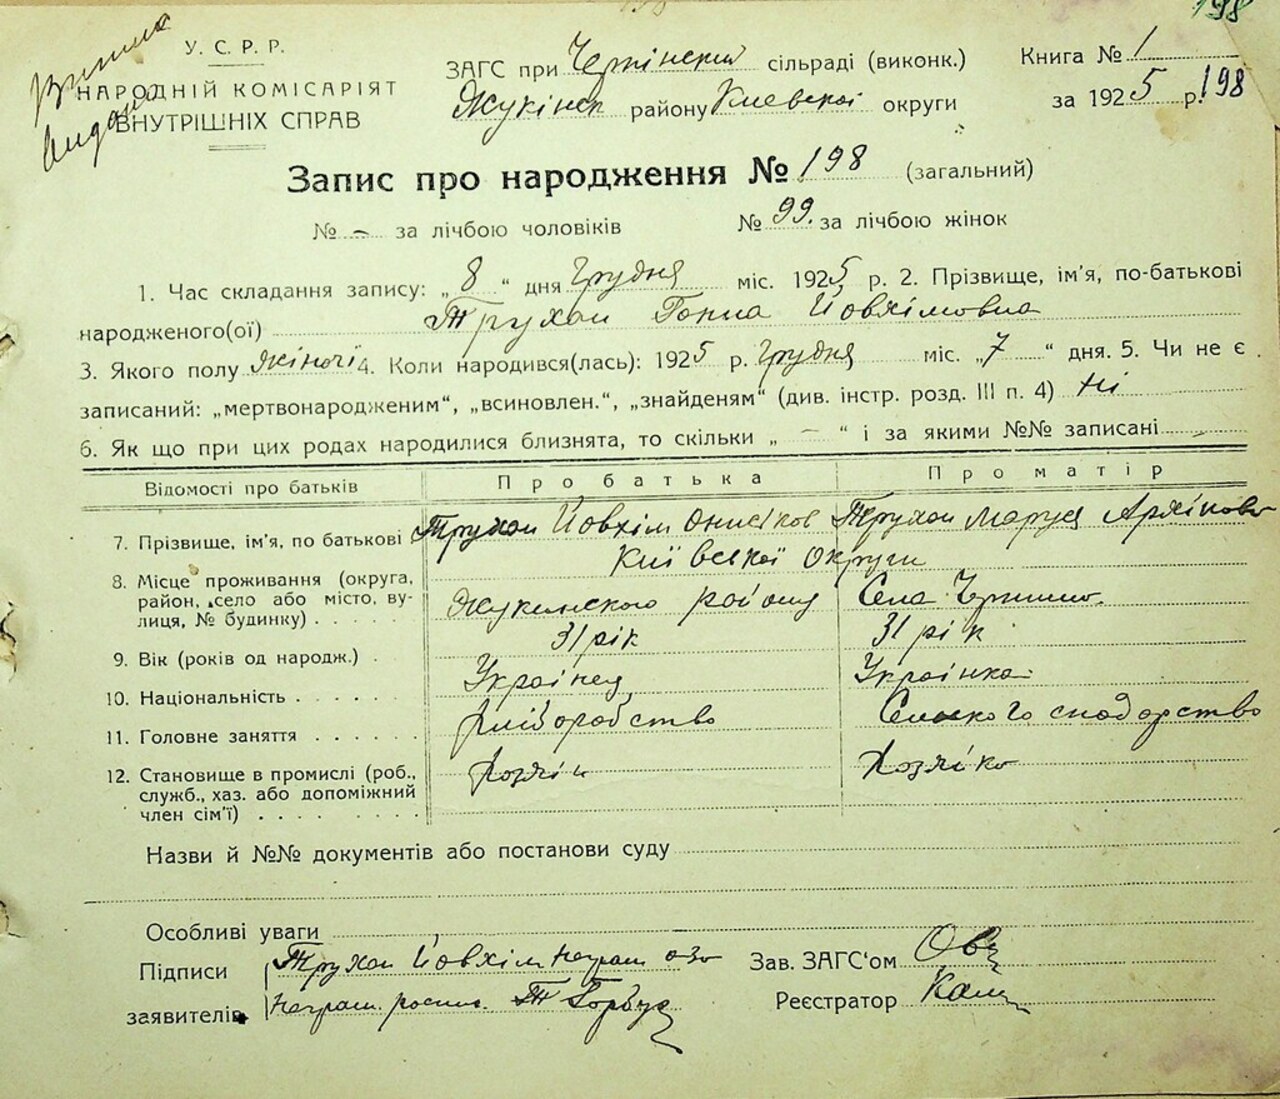 198
Витяг
видано
У. С. Р. Р.
НАРОДНІЙ КОМІСАРІЯТ
ВНУТРІШНІХ СПРАВ
ЗАГС при Чернінский сільраді (виконк.)
Жукінск району Киевской округи
Книга № 1
за 1925 р. 198
Запис про народження № 198 (загальний)
№ – за лічбою чоловіків № 99. за лічбою жінок
1. Час складання запису: „ 8 “ дня Грудня міс. 1925 р. 2. Прізвище, ім'я, по-батькові
народженого(ої) Трухан Ганна Йовхімовна
3. Якого полу жіночі 4. Коли народився(лась): 1925 р. Грудня міс. „ 7 “ дня. 5. Чи не є
записаний: „мертвонародженим“, „всиновлен.“, „знайденям“ (див. інстр. розд. III п. 4) Ні
6. Як що при цих родах народилися близнята, то скільки „ – “ і за якими №№ записані –
Відомості про батьків Про батька Про матір
7. Прізвище, ім'я, по батькові Трухан Йовхім Трухан Маруся
Київської Округи
8. Місце проживання (округа, район, село або місто, ву-
лиця, № будинку) Жукинского району Села Чернино.
9. Вік (років од народж.) 31 рік 31 рік
10. Національність Українец Українка
11. Головне заняття хліборобство
12. Становище в промислі (роб., служб., хаз. або допоміжний
член сім'ї) хозяін Хозяіка
Назви й №№ документів або постанови суду
Особливі уваги
Підписи Трухан Йовхім Зав. ЗАГС‘ом
заявителів Неграм. роспис. Реєстратор